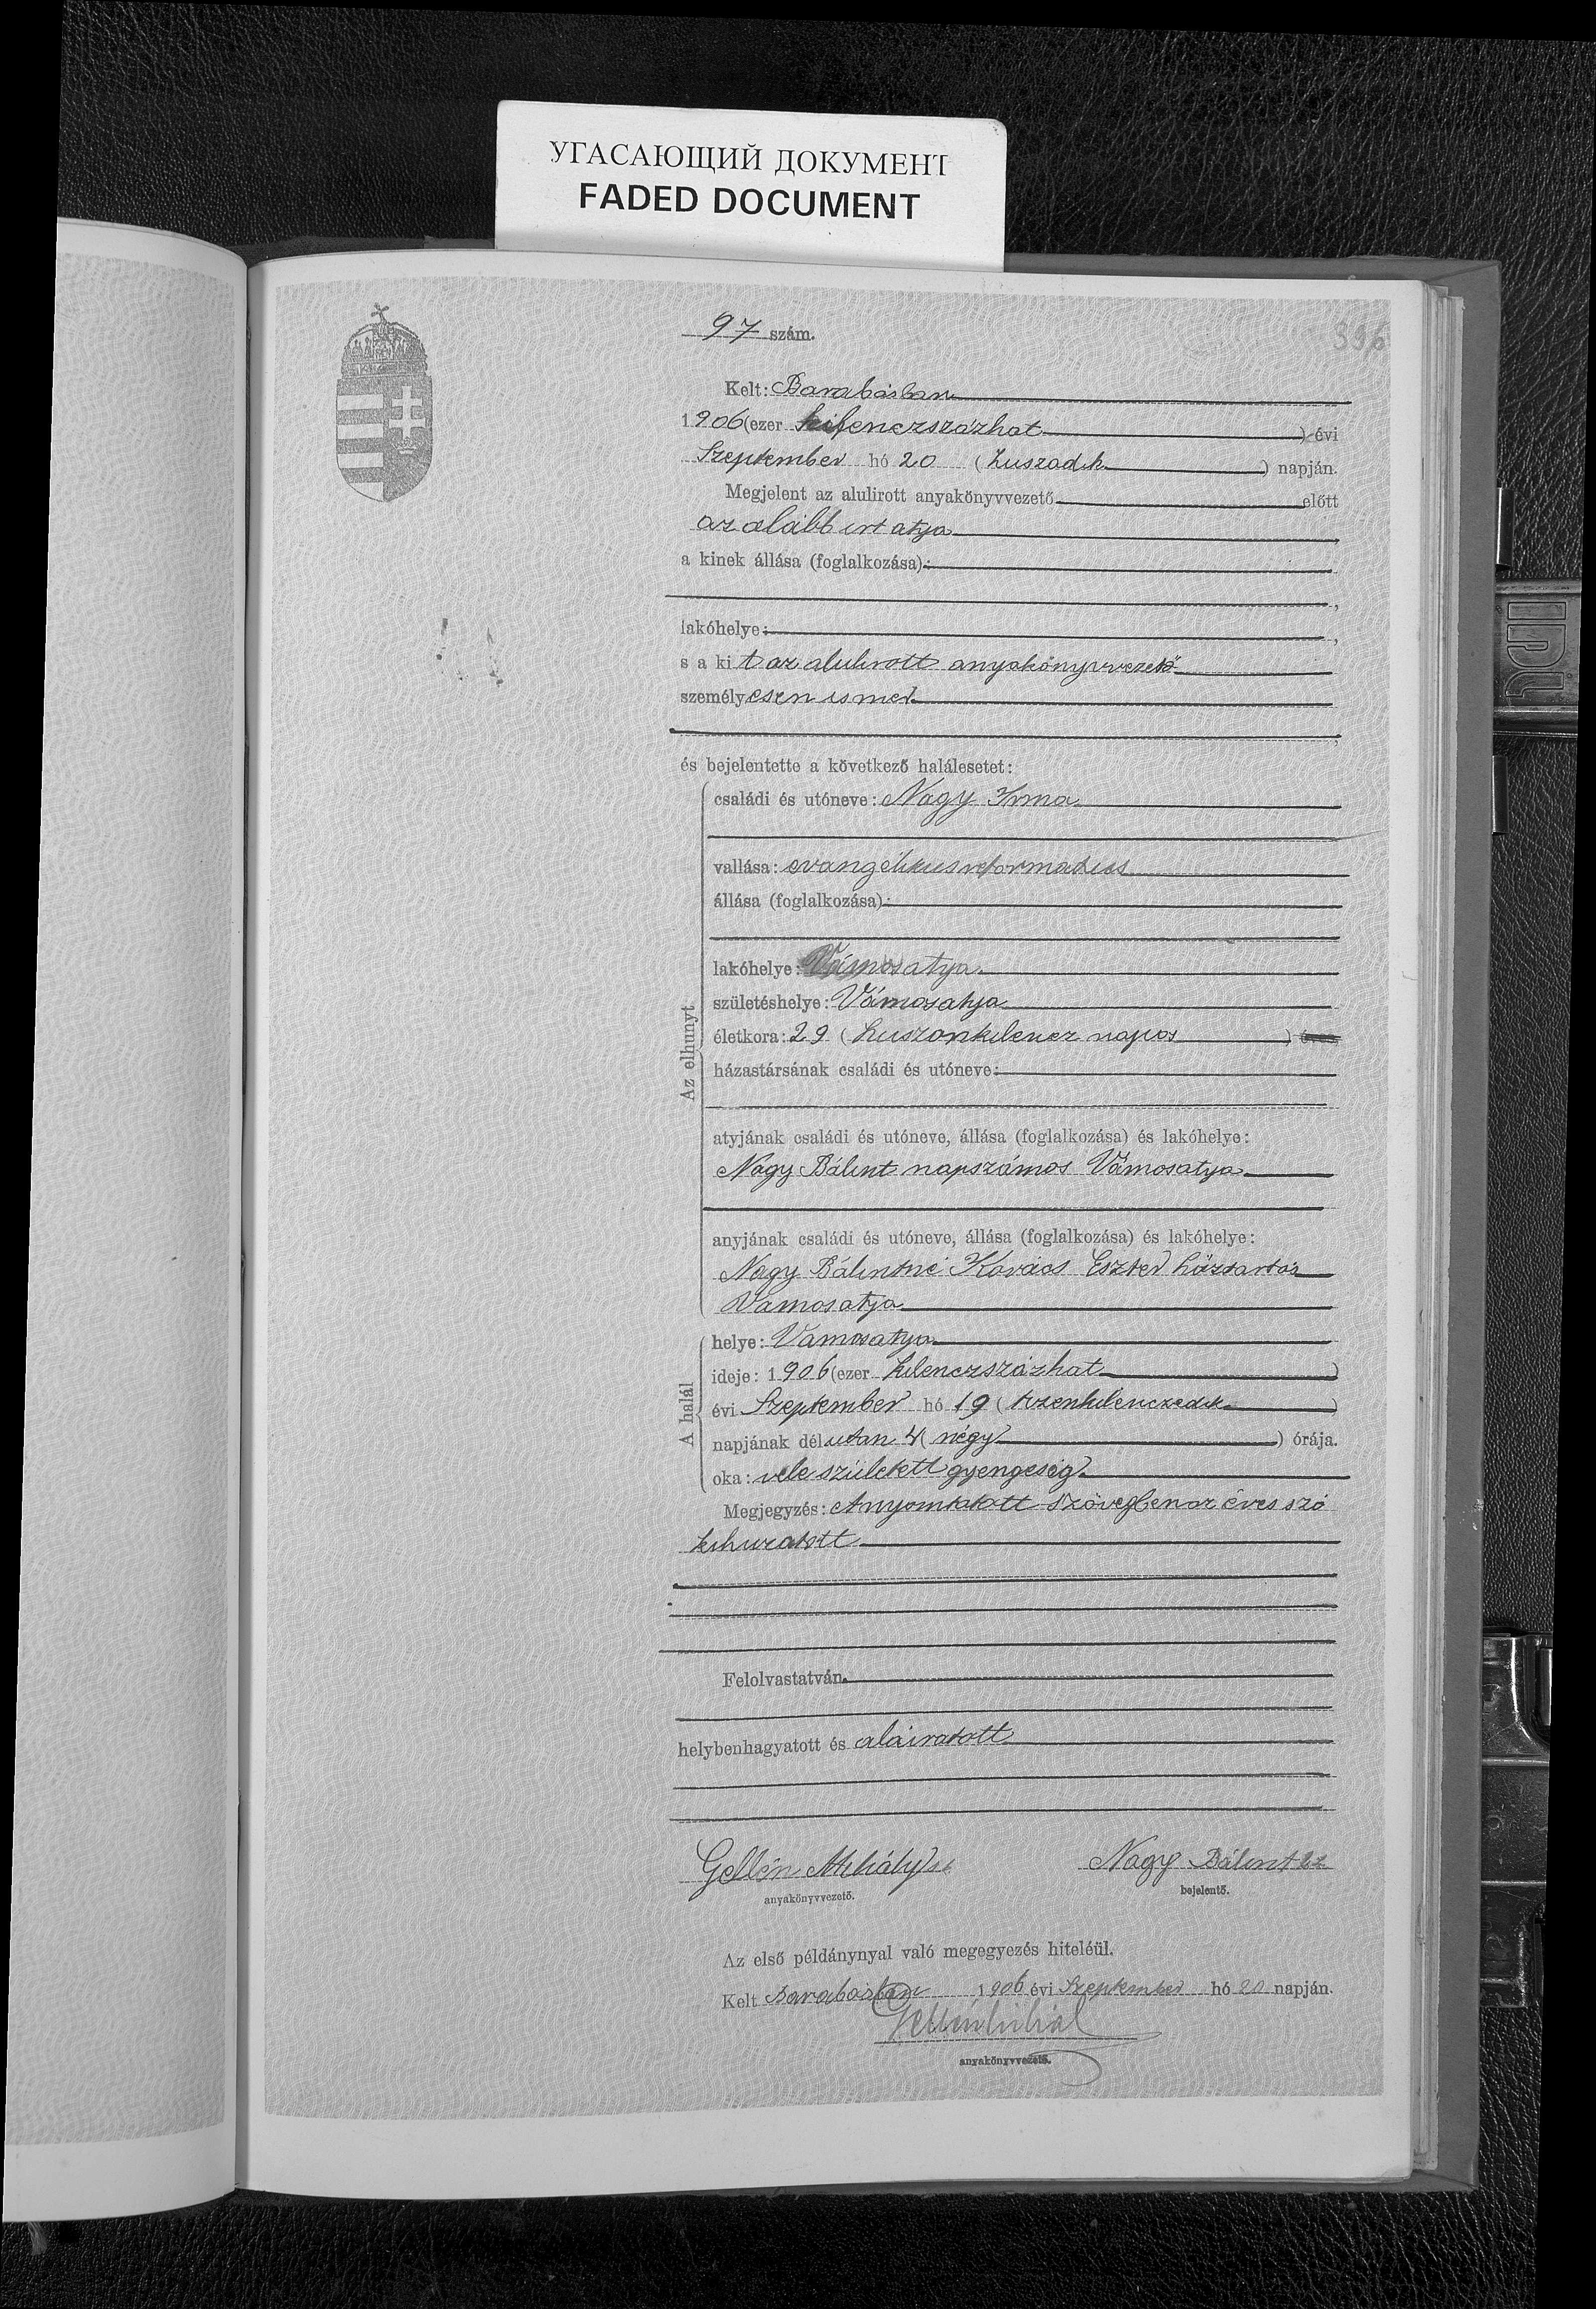 УГАСАЮЩИЙ ДОКУМЕНТ
FADED DOCUMENT
97 szám.
396
Kelt: Barabásban
1906 (ezer kilenczszázhat ) évi
Szeptember hó 20 (huszadik ) napján.
Megjelent az alulirott anyakönyvvezető előtt
az alább irt atya
a kinek állása (foglalkozása):
lakóhelye:
s a kit az alulirott anyakönyvvezető
személyesen ismer
és bejelentette a következő halálesetet:
Az elhunyt
családi és utóneve: Nagy Irma
vallása: evangélikus református
állása (foglalkozása):
lakóhelye: Vámosatya
születéshelye: Vámosatya
életkora: 29 (huszonkilencz napos ) éves,
házastársának családi és utóneve:
atyjának családi és utóneve, állása (foglalkozása) és lakóhelye:
Nagy Bálint napszámos Vámosatya
anyjának családi és utóneve, állása (foglalkozása) és lakóhelye:
Nagy Bálintné Kovács Eszter háztartás
Vámosatya
A halál
helye: Vámosatya
ideje: 1906 (ezer kilenczszázhat )
évi Szeptember hó 19 (tizenkilenczedik )
napjának délután 4 (négy ) órája.
oka: vele született gyengeség.
Megjegyzés: A nyomtatott szövegben az éves szó
kihuzatott
Felolvastatván
helybenhagyatott és aláiratott
Gellén Mihály sk
anyakönyvvezető.
Nagy Bálint sk
bejelentő.
Az első példánynyal való megegyezés hiteléül.
Kelt Barabásban 1906 évi Szeptember hó 20 napján.
Gellén Mihál
anyakönyvvezető.